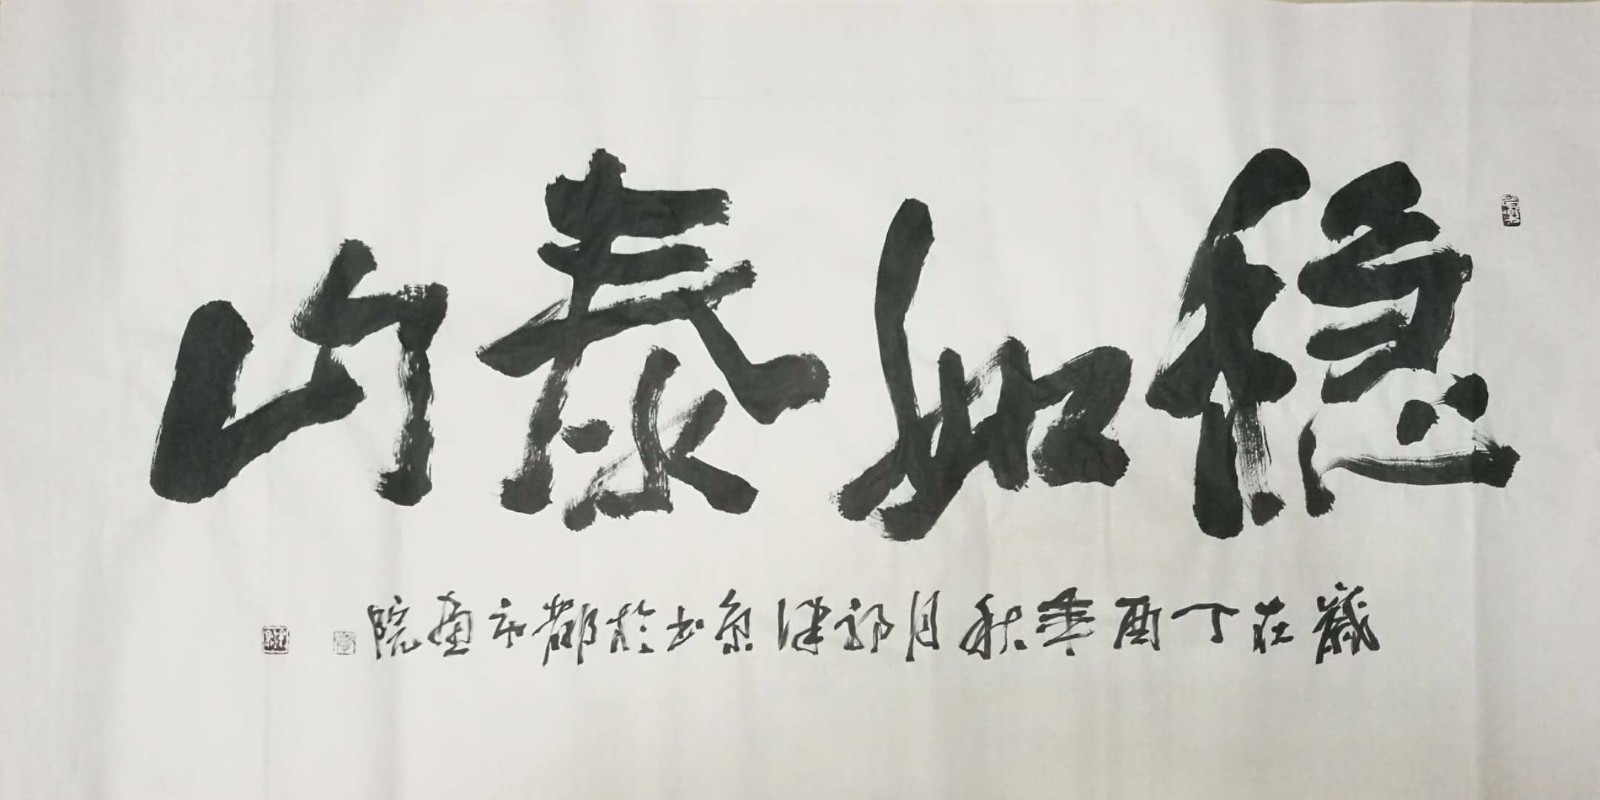 稳如泰山
岁在丁酉季秋月郭津京书於都市画院